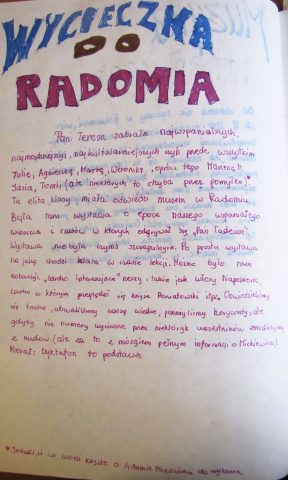 WYCIECZKA
DO
RADOMIA
Pani Teresa zabrała najwspanialszych,
najmądrzejszych, najkulturalniejszych czyli przede wszystkim
Julię, Agnieszkę, Martę, Weronikę, oprócz tego
Jasia, Tomka (ale niektórych to chyba przez pomyłkę).*
Ta elita klasy miała odwiedzić muzeum w Radomiu.
Była tam wystawa o epoce naszego wspaniałego
wieszcza i czasów w których odgrywał się „Pan Tadeusz".
Wystawa nie była czymś szczególnym. Po prostu wystawa
na jaką chodzi klasa w czasie lekcji. Można było tam
zobaczyć „bardzo interesujące" rzeczy, takie jak włosy Napoleona,
lustro w którym przeglądał się książę Poniatowski itp. Dowiedzieliśmy
się trochę, utrwaliliśmy naszą wiedzę, ale
gdyby nie numery wycinane przez niektórych uczestników
z nudów (ale za to z mózgiem pełnym informacji o Mickiewiczu).
Morał: Dyktafon to podstawa.
* w wersji książce o Adamie Mickiewiczu do